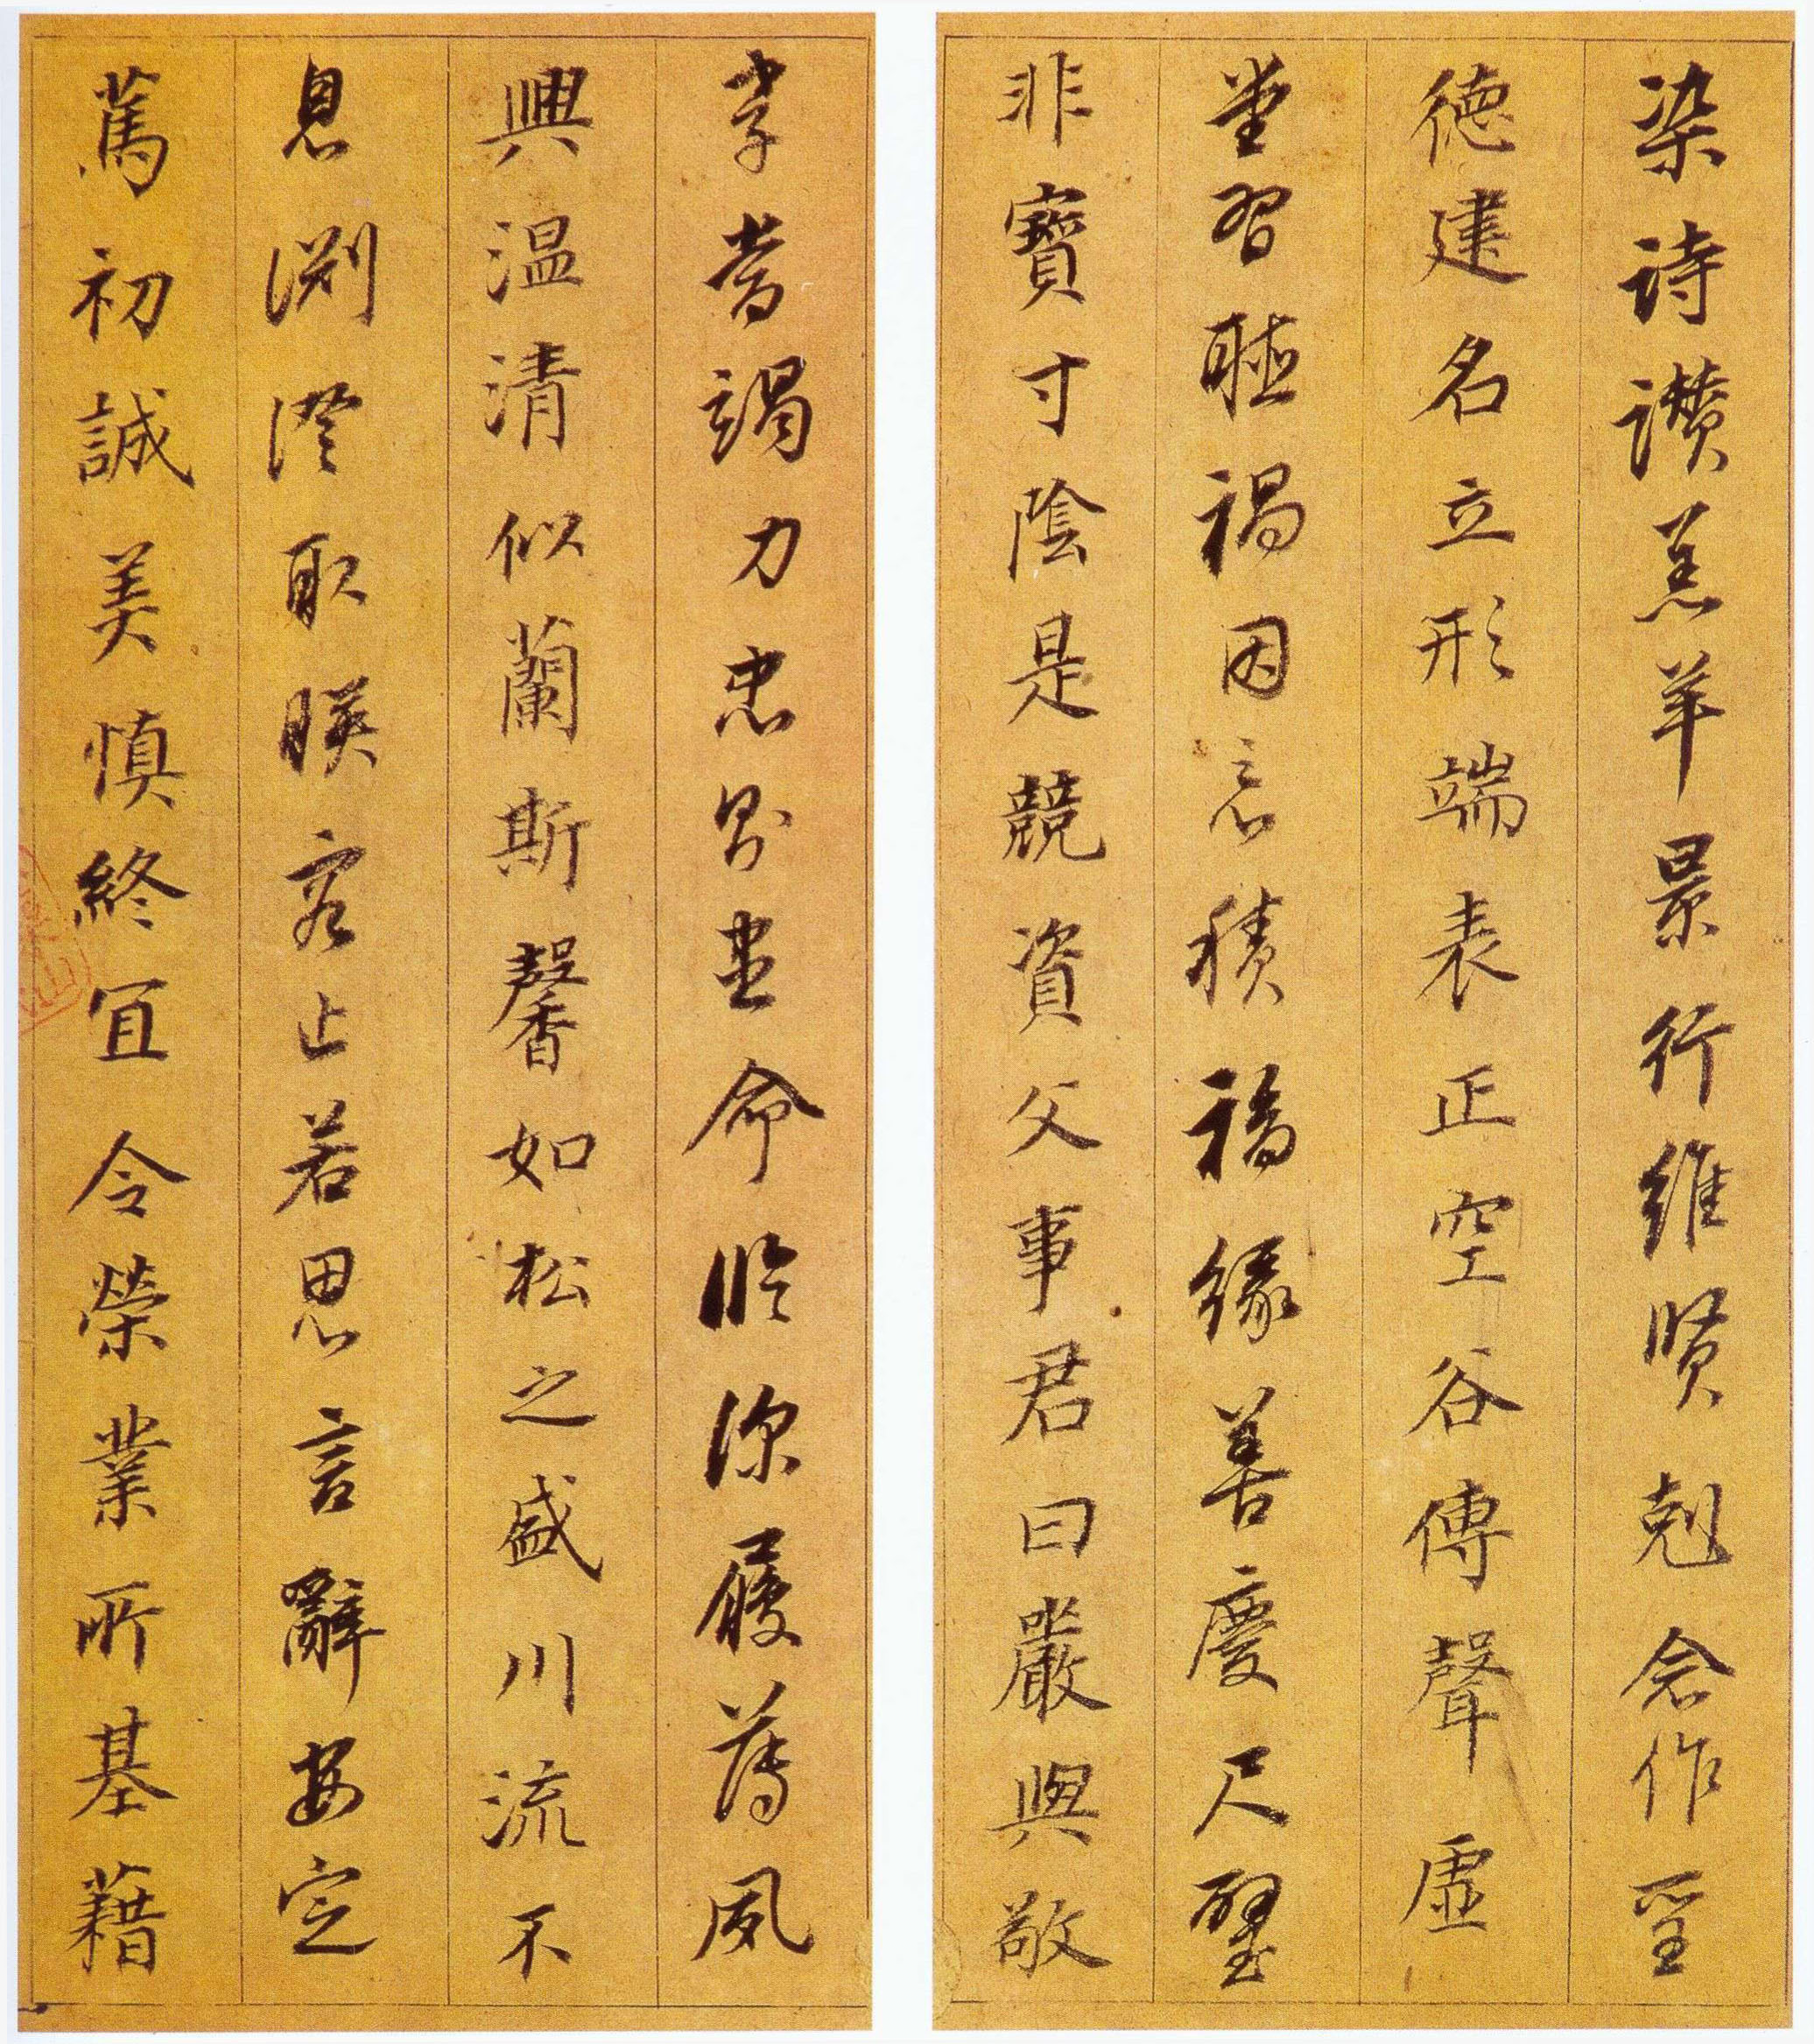 染詩讚羔羊景行維賢剋念作聖
德建名立形端表正空谷傳聲虛
堂習聽禍因惡積福緣善慶尺璧
非寶寸陰是競資父事君曰嚴與敬
孝當竭力忠則盡命臨深履薄夙
興溫清似蘭斯馨如松之盛川流不
息淵澄取暎容止若思言辭安定
篤初誠美慎終宜令榮業所基藉